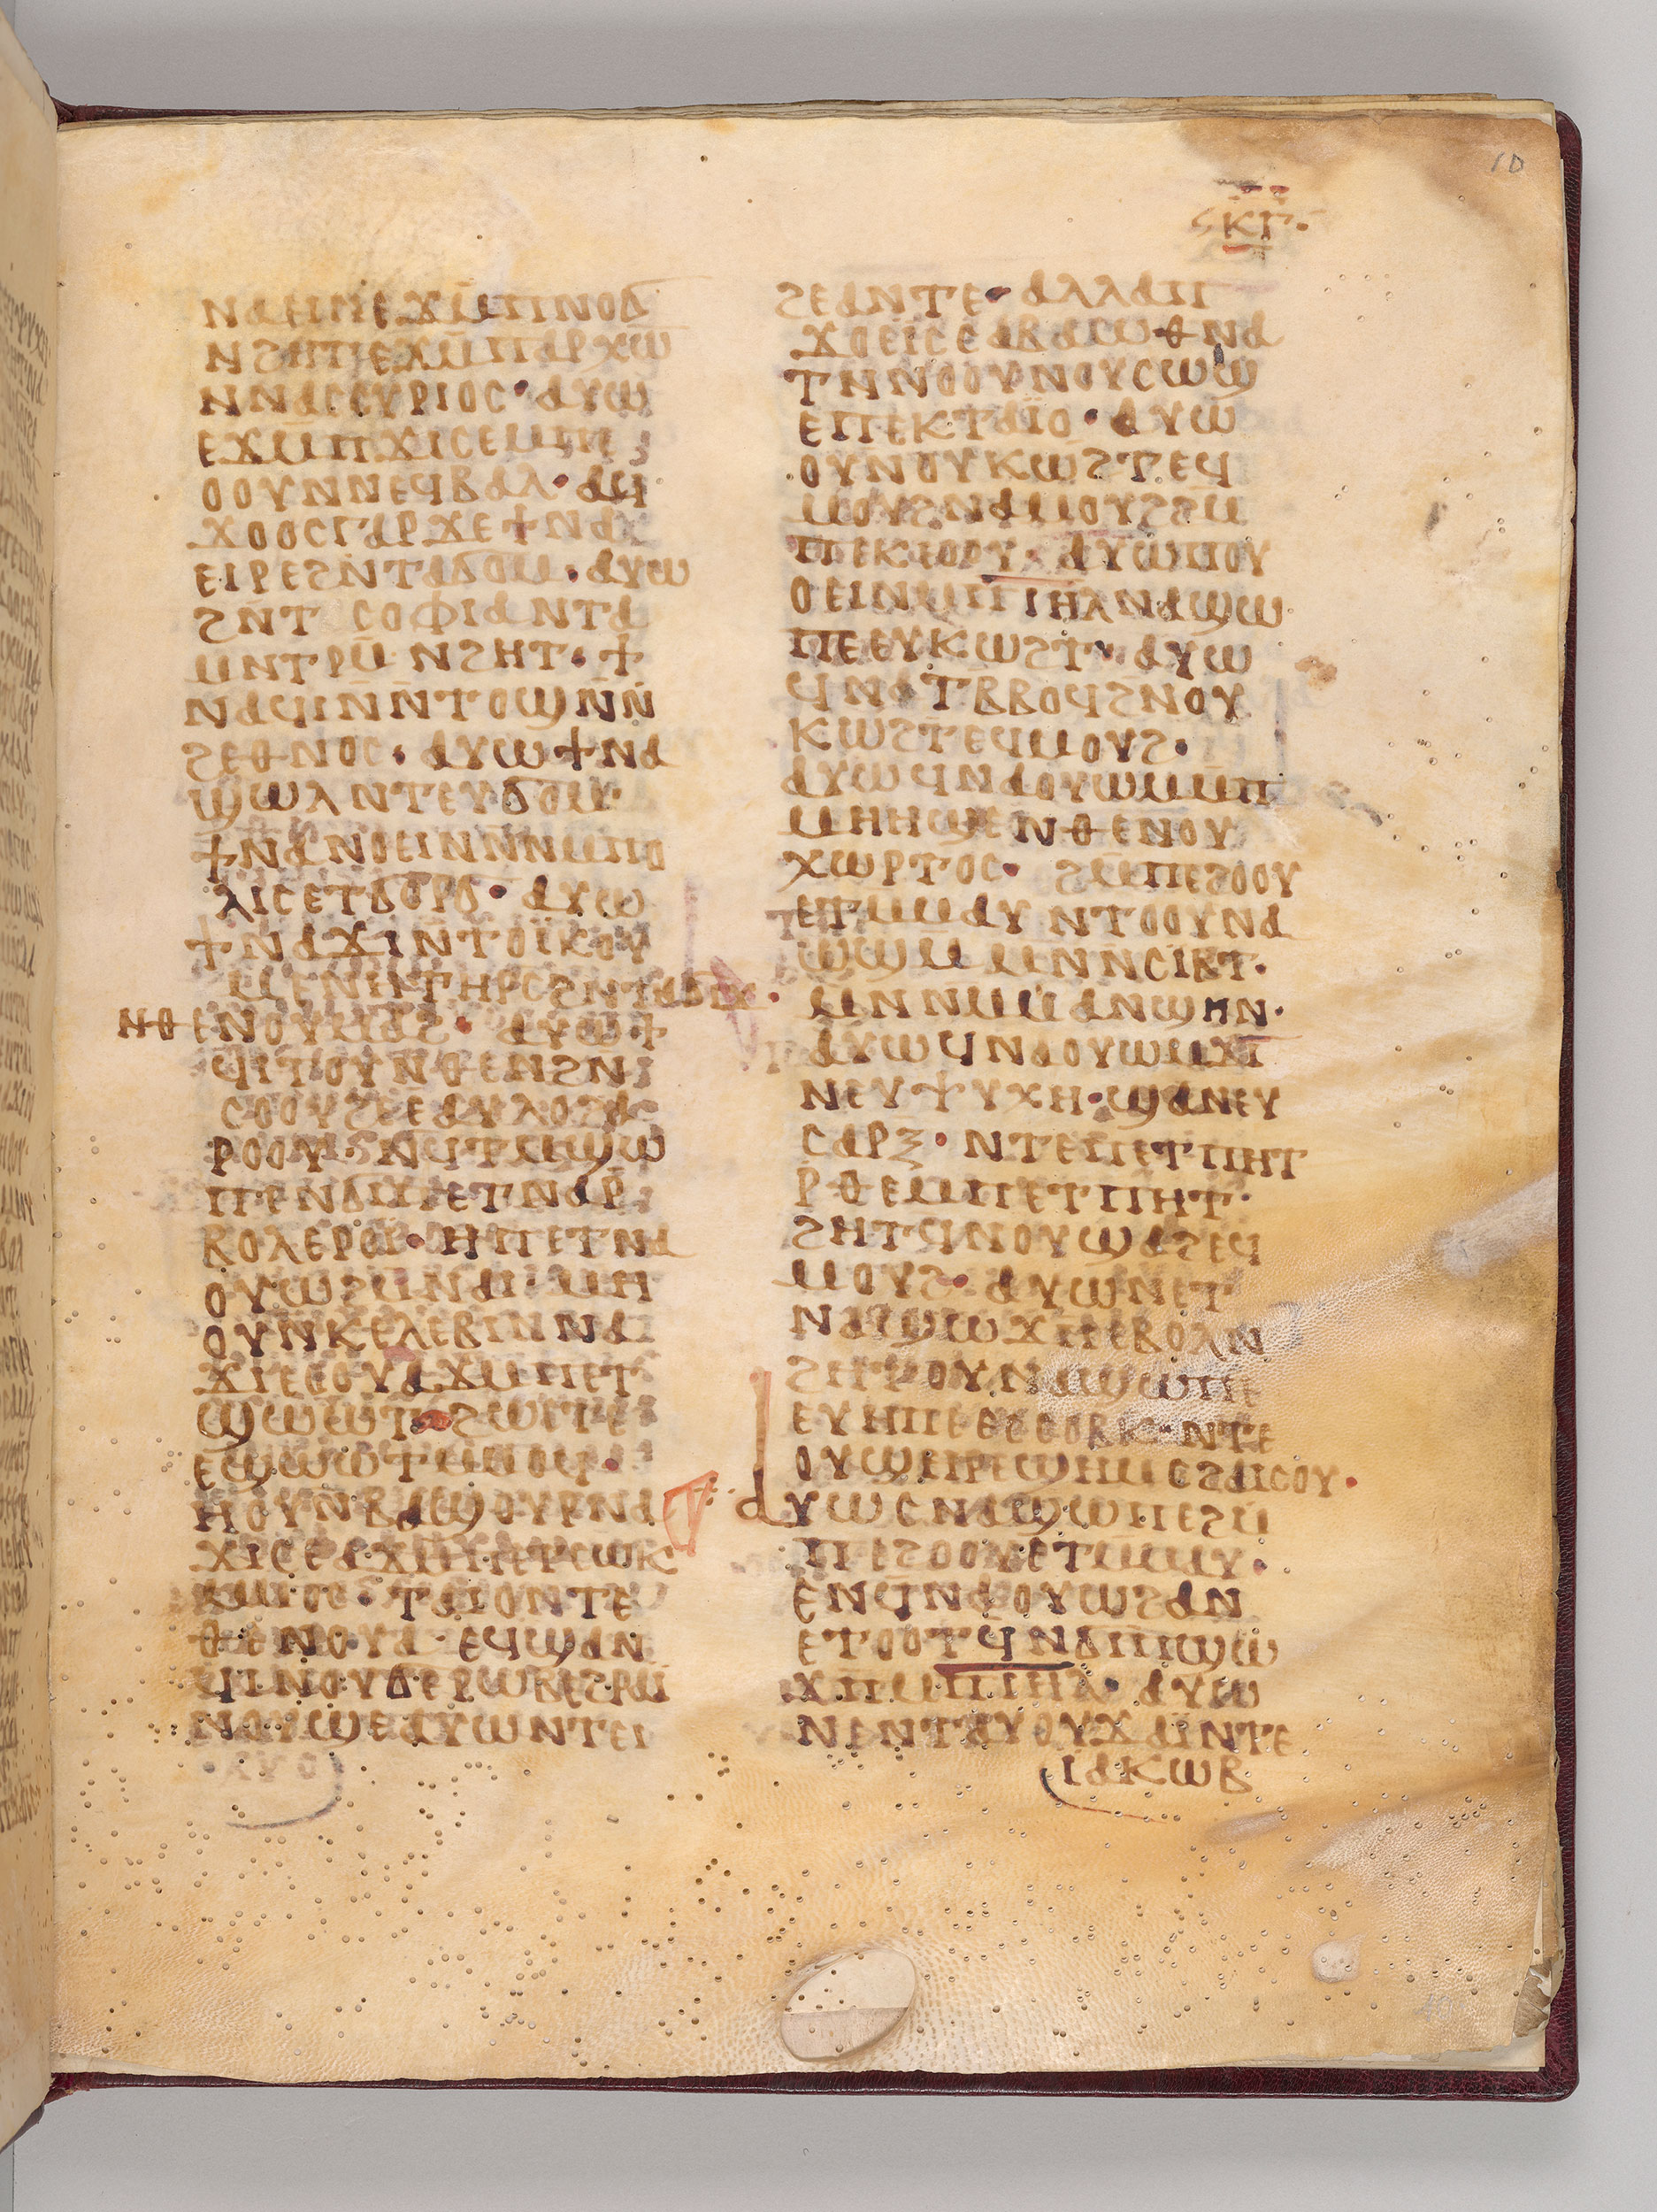 10
ⲕⲅ
ⲛⲁⲉⲓⲛⲉⲉϫⲙⲡⲛⲟϭ
ⲛϩⲏⲧⲉϫⲙⲡⲁⲣⲭⲱ
ⲛⲛⲁⲥⲥⲩⲣⲓⲟⲥ· ⲁⲩⲱ
ⲉϫⲙⲡϫⲓⲥⲉⲙⲡⲉ
ⲟⲟⲩⲛⲛⲉϥⲃⲁⲗ· ⲁϥ
ϫⲟⲟⲥⲅⲁⲣϫⲉϯⲛⲁ
ⲉⲓⲣⲉϩⲛⲧⲁϭⲟⲙ· ⲁⲩⲱ
ϩⲛⲧⲥⲟⲫⲓⲁⲛⲧⲁ
ⲙⲛⲧⲣⲙⲛϩⲏⲧ· ϯ
ⲛⲁϥⲓⲛⲛⲧⲟϣⲛⲛ
ϩⲉⲑⲛⲟⲥ· ⲁⲩⲱϯⲛⲁ
ϣⲱⲗⲛⲧⲉⲩϭⲟⲙ·
ϯⲛⲁⲛⲟⲉⲓⲛⲛⲛⲙⲡⲟ
ⲗⲓⲥⲉⲧϭⲟⲣϭ· ⲁⲩⲱ
ϯⲛⲁϫⲓⲛⲧⲟⲓⲕⲟⲩ
ⲙⲉⲛⲏⲧⲏⲣⲥϩⲛⲧⲁϭⲓϫ·
ⲛⲑⲉⲛⲟⲩⲙⲁϩ· ⲁⲩⲱϯ
ϥⲓⲧⲟⲩⲛⲑⲉⲛϩⲛ
ⲥⲟⲟⲩϩⲉⲉⲁⲩⲗⲟϩⲁ
ⲣⲟⲟⲩ· ⲛϥⲧⲙϣⲱ
ⲡⲉⲛϭⲓⲡⲉⲧⲛⲁⲣ
ⲃⲟⲗⲉⲣⲟⲓ· ⲏⲡⲉⲧⲛⲁ
ⲟⲩⲱϩⲙⲛⲁⲓ· ⲙⲏ
ⲟⲩⲛⲕⲉⲗⲉⲃⲓⲛⲛⲁ
ϫⲓⲉⲟⲟⲩⲁϫⲙⲡⲉⲧ
ϣⲱⲱⲧ ϩⲱⲧⲉ
ⲉϣⲱⲱⲧⲙⲙⲟϥ·
ⲏⲟⲩⲛⲃⲁϣⲟⲩⲣⲛⲁ
ϫⲓⲥⲉⲁϫⲙⲡⲉⲧⲥⲱⲕ
ⲙⲙⲟⲥ· ⲧⲁⲓⲟⲛⲧⲉ
ⲑⲉⲛⲟⲩⲁ· ⲉϥϣⲁⲛ
ϥⲓⲛⲟⲩϭⲉⲣⲱⲃⲉϩⲣⲁⲓ
ⲛⲟⲩϣⲉⲁⲩⲱⲛⲧⲉⲓ
ϩⲉⲁⲛⲧⲉ· ⲁⲗⲗⲁⲡ
ϫⲟⲉⲓⲥⲥⲁⲃⲁⲱⲑⲛⲁ
ⲧⲛⲛⲟⲟⲩⲛⲟⲩⲥⲱϣ
ⲉⲡⲉⲕⲧⲁⲓⲟ· ⲁⲩⲱ
ⲟⲩⲛⲟⲩⲕⲱϩⲧⲉϥ
ⲙⲟⲩϩⲛⲁⲙⲟⲩϩϩⲙ
ⲡⲉⲕⲉⲟⲟⲩ· ⲁⲩⲱⲡⲟⲩ
ⲟⲉⲓⲛⲙⲡⲓⲏⲗⲛⲁϣⲱ
ⲡⲉⲉⲩⲕⲱϩⲧ· ⲁⲩⲱ
ϥⲛⲁⲧⲃⲃⲟϥϩⲛⲟⲩ
ⲕⲱϩⲧⲉϥⲙⲟⲩϩ·
ⲁⲩⲱϥⲛⲁⲟⲩⲱⲙⲙⲡ
ⲙⲏⲏϣⲉⲛⲑⲉⲛⲟⲩ
ⲭⲱⲣⲧⲟⲥ· ϩⲙⲡⲉϩⲟⲟⲩ
ⲉⲧⲙⲙⲁⲩ ⲛⲧⲟⲟⲩⲛⲁ
ⲱϣⲙ ⲙⲛⲛⲥⲓⲃⲧ·
ⲙⲛⲛⲙⲙⲁⲛϣⲏⲛ·
ⲁⲩⲱϥⲛⲁⲟⲩⲱⲙϫⲓ
ⲛⲉⲩⲯⲩⲭⲏ· ϣⲁⲛⲉⲩ
ⲥⲁⲣⲝ· ⲛⲧⲉⲡⲉⲧⲡⲏⲧ
ⲣⲑⲉⲙⲡⲉⲧⲡⲏⲧ·
ϩⲏⲧϥⲛⲟⲩϣⲁϩⲉϥ
ⲙⲟⲩϩ· ⲁⲩⲱⲛⲉⲧ
ⲛⲁϣⲱϫⲡⲉⲃⲟⲗⲛ
ϩⲏⲧⲟⲩⲛⲁϣⲱⲡⲉ
ⲉⲩⲏⲡⲉⲉⲥⲥⲟⲃⲕ· ⲛⲧⲉ
ⲟⲩϣⲏⲣⲉϣⲏⲙⲥϩⲁⲓⲥⲟⲩ·
ⲁⲩⲱⲥⲛⲁϣⲱⲡⲉϩⲙ
ⲡⲉϩⲟⲟⲩⲉⲧⲙⲙⲁⲩ·
ⲉⲛϥⲛⲁⲟⲩⲱϩⲁⲛ
ⲉⲧⲟⲟⲧϥⲛϭⲓⲡϣⲱ
ϫⲡⲙⲡⲓⲏⲗ· ⲁⲩⲱ
ⲛⲉⲛⲧⲁⲩⲟⲩϫⲁⲓⲛⲧⲉ
ⲓⲁⲕⲱⲃ